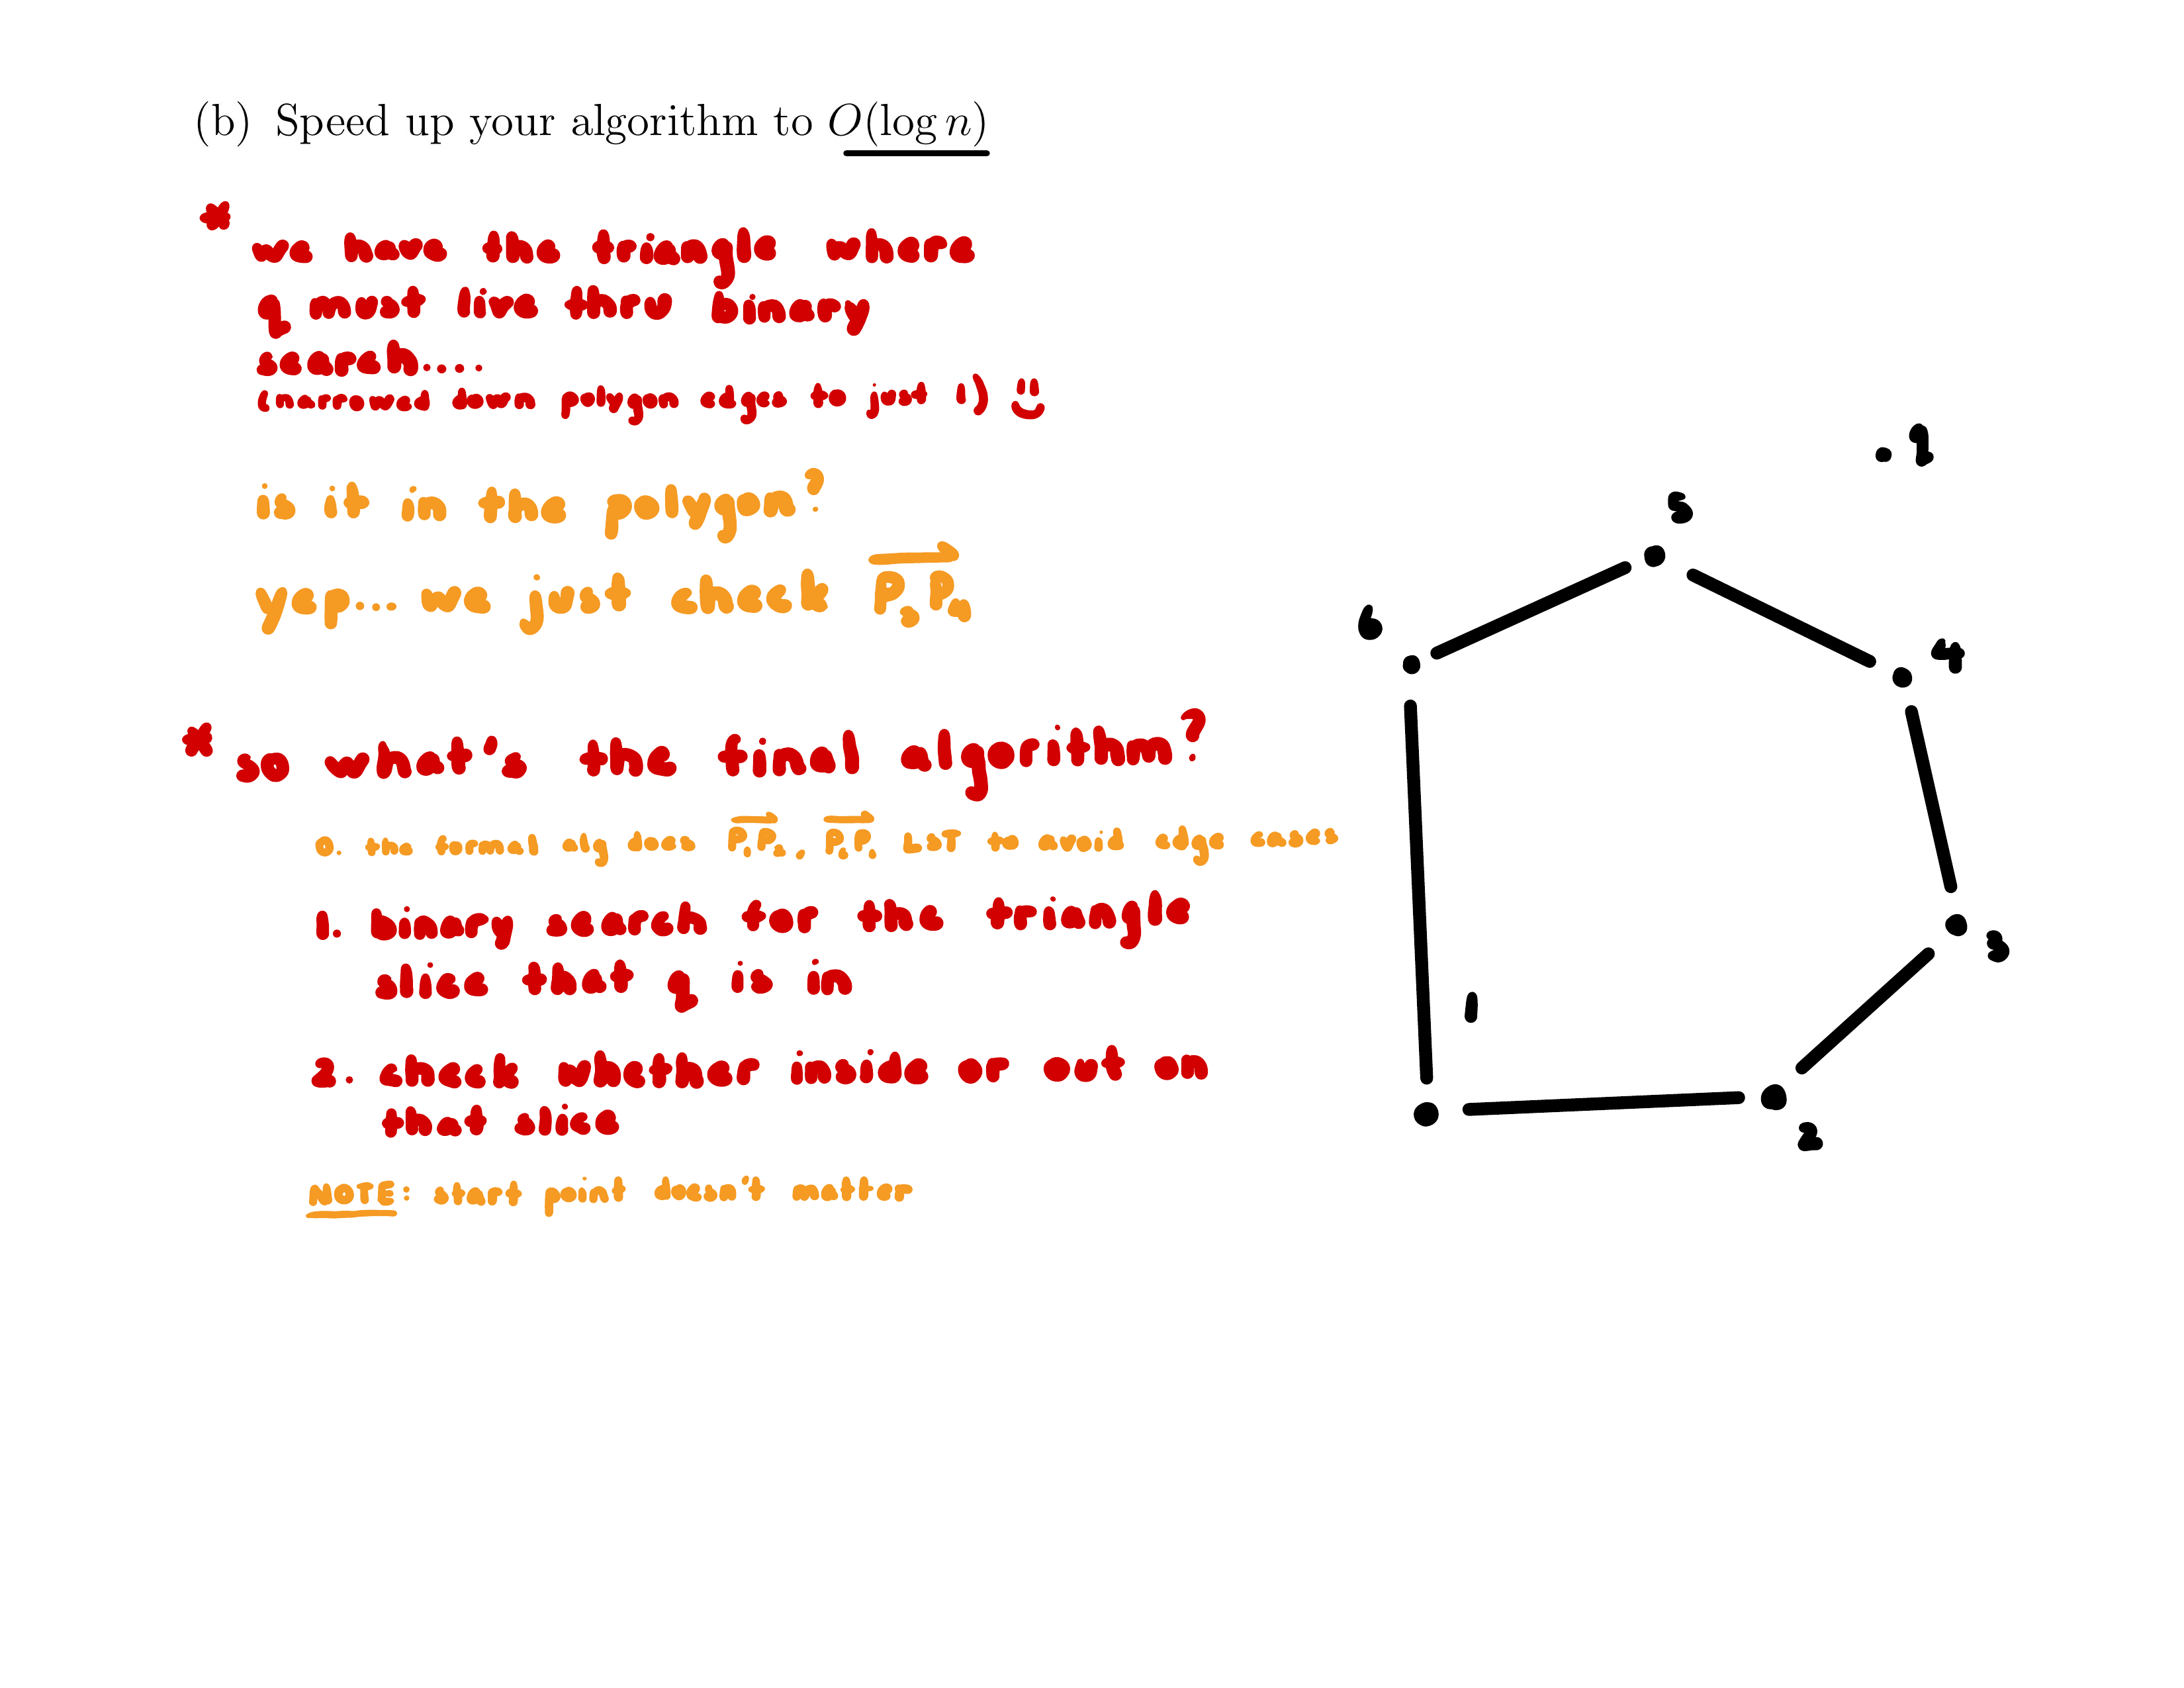 (b) Speed up your algorithm to O(log n)
* we have the triangle where
q must live thru binary
search....
(narrowed down polygon edges to just 1) :)
is it in the polygon?
yep... we just check P₃P₄
* so what's the final algorithm?
0. the formal alg does P₁P₂, PₙP₁ LST to avoid edge cases
1. binary search for the triangle
slice that q is in
2. check whether inside or out on
that slice
NOTE: start point doesn't matter
.q
5
6
4
3
1
2